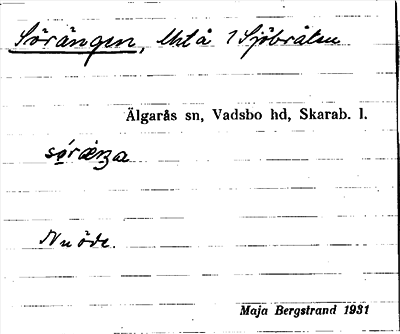 Sörängen, Utl å 1 Sjöbråten
Älgarås sn, Vadsbo hd, Skarab. l.
Nu öde.
Maja Bergstrand 1931